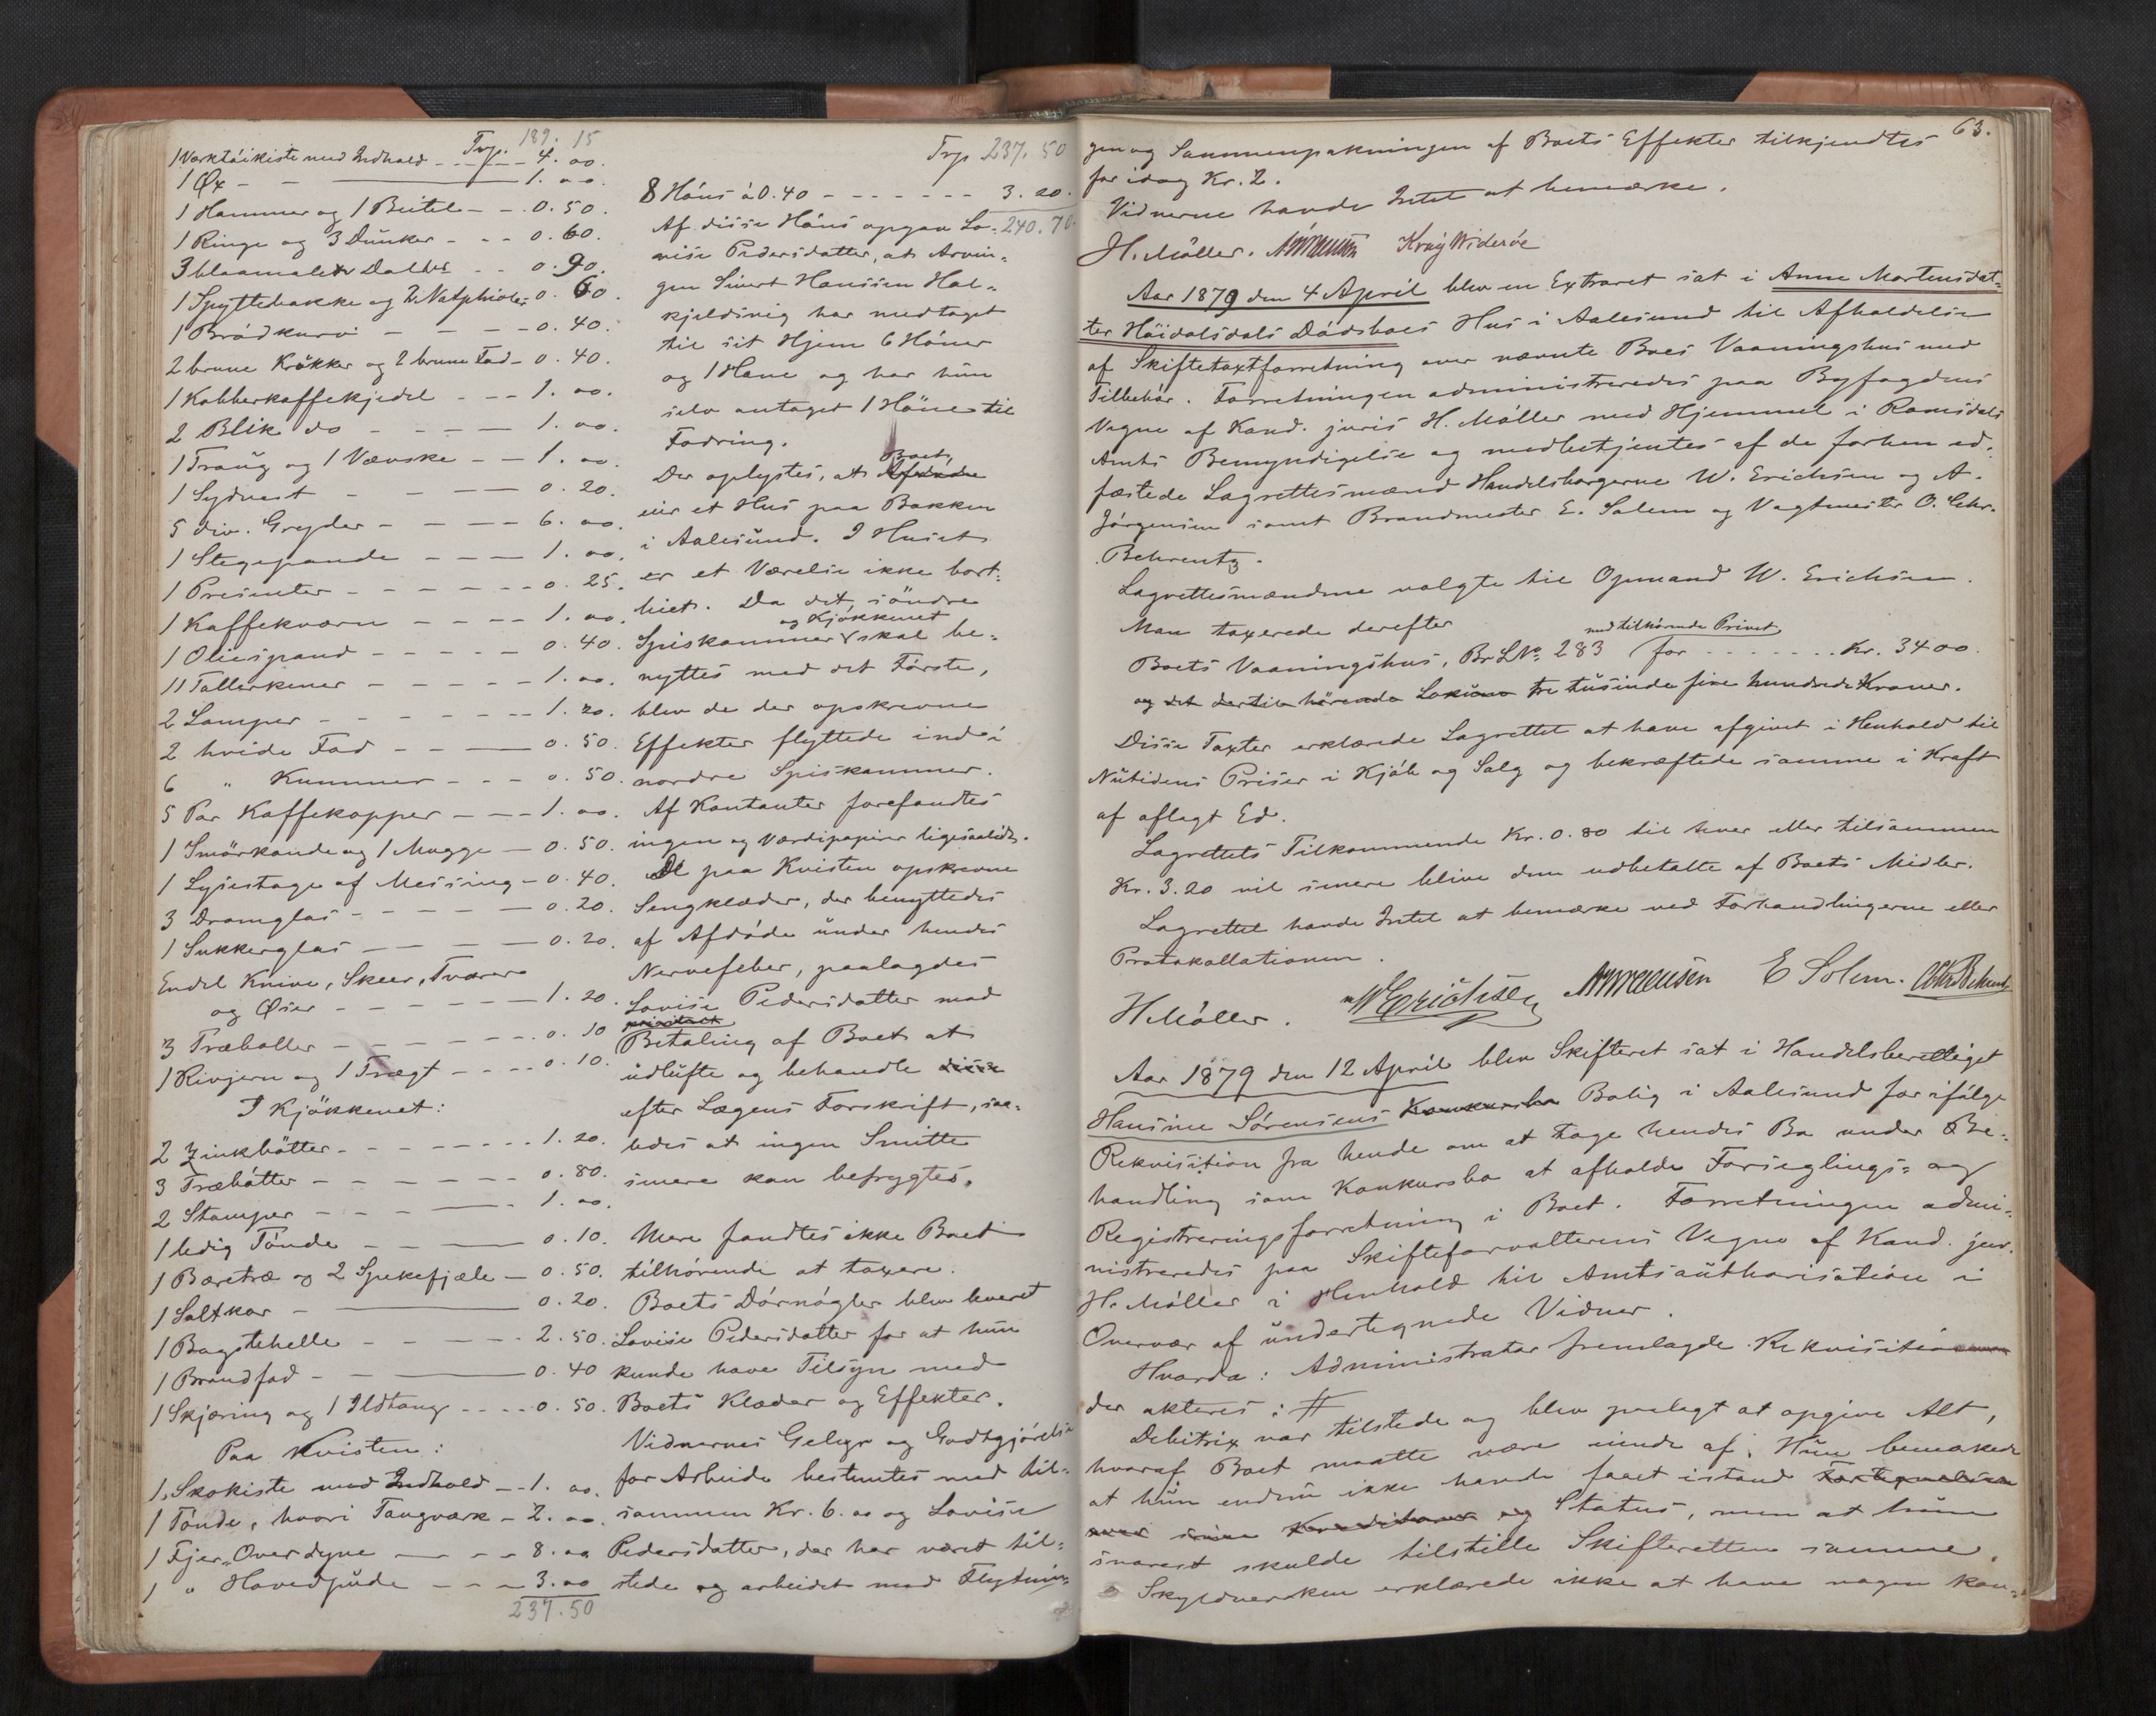 Trp. 189. 15
1 Værktöikiste med Indhold - - - - 4. 00.
1 Øx - - 1. 00.
1 Hammer og 1 Beitel - - 0. 50.
1 Ringe og 3 Dunker - - - 0. 60.
3 blaamalede Daller - - 0. 90.
1 Spyttebakke og 2 Natphioler 0. 60.
1 Brödkurv - - - - 0. 40.
2 brune Krükker og 2 brune Fad - 0. 40.
1 Kobberkaffekjedel - - - 1. 00.
2 Blik do - - - - 1. 00.
1 Traug og 1 Vævske - - 1. 00.
1 Sydvest - - - 0. 20.
5 div. Gryder - - - - 6. 00.
1 Stegepande - - - - 1. 00.
1 Presenter - - - - - 0. 25.
1 Kaffekværn - - - - 1. 00.
1 Oliespand - - - - - 0. 40.
11 Tallerkener - - - - - 1. 00.
2 Lamper - - - - - - 1. 20.
2 hvide Fad - - - 0. 50.
6 " Kummer - - - 0. 50.
5 Par Kaffekopper - - - 1. 00.
1 Smörkande og 1 Mugge - 0. 50.
1 Lysestage af Messing - 0. 40.
3 Dramglas - - - - - 0. 20.
1 Sukkerglas - - - - 0. 20.
Endel Knive, Skeer, Tvarer
og Øser - - - - - 1. 20.
3 Træboller - - - - - - 0. 10
1 Rivjern og 1 Trægt - - - - 0. 10.
I Kjökkenet:
2 Zinkbötter - - - - - - 1. 20.
3 Træbötter - - - - - - 0. 80.
2 Stamper - - - - 1. 00.
1 ledig Tönde - - - 0. 10.
1 Bæretræ og 2 Spekefjæle - 0. 50.
1 Saltkar - 0. 20.
1 Bagstehelle - - - - - 2. 50.
1 Brændfad - - 0. 40
1 Skjæring og 1 Ildtang - - - - 0. 50.
Paa Kvisten:
1 Skokiste med Indhold - - 1. 00.
1 Tönde, hvori Tangværk - 2. 00.
1 Fjer-Overdyne - - - 8. 00
1 " Hovedpude - - - 3. 00
237. 50
Trp 237. 50
8 Höns á 0.40 - - - - - - - 3. 20.
Af disse Höns opgav Lo- 240. 70.
vise Pedersdatter, at Arvin-
gen Sivert Hanssen Hal-
kjeldsvig har medtaget
til sit Hjem 6 Höner
og 1 Hane og har hun
selv antaget 1 Höne til
Fodring.
Boet,
Der oplystes, at Afdöde
eier et Hus paa Bakken
i Aalesund. I Huset
er et Værelse ikke bort-
leiet. Da det söndre
og Kjökkenet
Spiskammer skal be-
nyttes med det Förste,
blev de der opskrevne
Effekter flyttede ind i
nordre Spiskammer.
Af Kontanter forefandtes
ingen og Værdipapirer ligesaalidt.
De paa Kvisten opskrevne
Sengklæder, der benyttedes
af Afdöde under hendes
Nervefeber, paalagdes
Lovise Pedersdatter mod
Betaling af Boet at
udlufte og behandle disse
efter Lægens Forskrift, saa-
ledes at ingen Smitte
senere kan befrygtes.
Mere fandtes ikke Boet
tilhörende at taxere.
Boets Dörnögler blev leveret
Lovise Pedersdatter for at hun
kunde have Tilsyn med
Boets Klæder og Effekter.
Vidnernes Gebyr og Godtgjörelse
for Arbeide bestemtes med til-
sammen Kr. 6. 00 og Lovise
Pedersdatter, der har været til-
stede og arbeidet med Flytnin-
63.
gen og Sammenpakningen af Boets Effekter tilkjendtes
for idag Kr. 2.
Vidnerne havde Intet at bemærke.
H. Möller. Knüg Wideröe
Aar 1879 den 4 April blev en Extraret sat i Anne Martensdat-
ter Höidalsdals Dödsboes Hus i Aalesund til Afholdelse
af Skiftetaxtforretning over nævnte Boes Vaaningshus med
Tilbehör. Forretningen administreredes paa Byfogdens
Vegne af Kand. juris H. Möller med Hjemmel i Romsdals
Amts Bemyndigelse og medbetjentes af de forhen ed-
fæstede Lagrettesmænd Handelsborgerne W. Erichsen og A.
Jörgensen samt Brandmester E. Solem og Vagtmester O. Chr.
Behrentz.
Lagrettesmændene valgte til Opmand W. Erichsen.
Man taxerede derefter
med tilhörende Privet
Boets Vaaningshus, Br L No 283 for - - - - - - - Kr. 3400.
og det dertil hörende Lokum tre tusinde fire hundrede Kroner.
Disse Taxter erklærede Lagrettet at have afgivet i Henhold til
Nutidens Priser i Kjöb og Salg og bekræftede samme i Kraft
af aflagt Ed.
Lagrettets Tilkommende Kr. 0. 80 til hver eller tilsammen
Kr. 3. 20 vil senere blive dem udbetalte af Boets Midler.
Lagrettet havde Intet at bemærke ved Forhandlingerne eller
Protokollationen.
H Möller. W Erichsen E Solem.
Aar 1879 den 12 April blev Skifteret sat i Handelsberettiget
Hansine Sörensens Konkursbo Bolig i Aalesund for ifölge
Rekvisition fra hende om at tage hendes Bo under Be-
handling som Konkursbo at afholde Forseglings- og
Registreringsforretning i Boet. Forretningen admi-
nistreredes paa Skifteforvalterens Vegne af Kand. jur.
H. Möller i Henhold til Amtsauthorisation i
Overvær af undertegnede Vidner.
Hvorda: Administrator fremlagde Rekvisitionen
der akteres i #
Debitrix var tilstede og blev paalagt at opgive Alt,
hvoraf Boet maatte være eiende af. Hun bemærkede
at hun endnu ikke havde faaet istand Fortegnelsen
over sine Kreditorer og Status, men at hun
snarest skulde tilstille Skifteretten samme.
Skyldnersken erklærede ikke at have nogen kon-